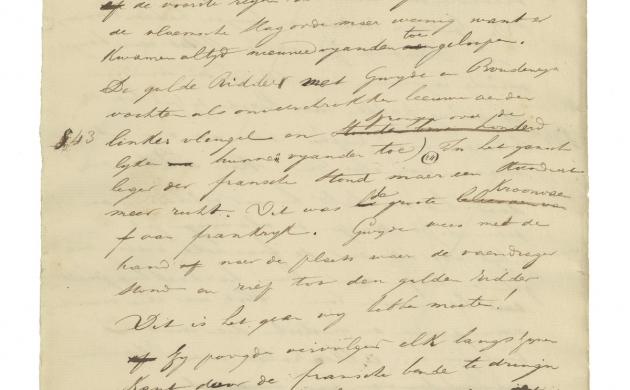 de vooste regen
de vlaemsche slagorde maer weinig want er
kwamen altyd nieuwe vyanden toegeloopen.
De gulde Ridder met Gwyde en Boudewyn
vochten als onverschrokken leeuwen aen den
sprongen over de
843 linker vleugel en
lyken hunne vyanden toe) In het gansche
leger der fransche stond maer een standaert
meer recht. Dit was de groote kroonvaen
f van frankryk. Gwyde wees met de
hand naer de plaets waer de vaendrager
stond en riep tot den gulden ridder
Dit is het geen wy hebben moeten!
Zy poogde vervolgens elk langs zynen
kant door de fransche bende te dringen